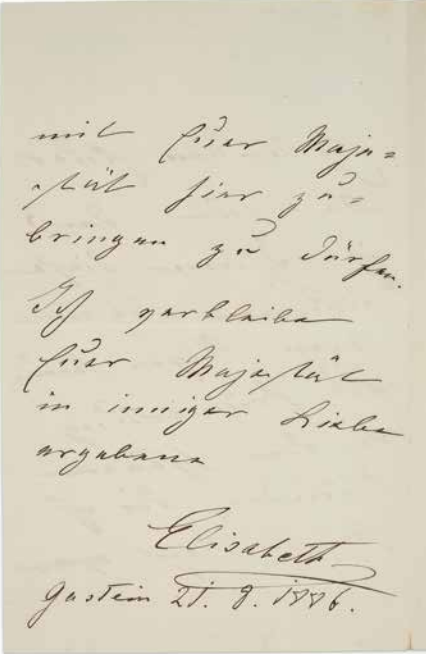 mit Euer Maje-
stät hier zu-
bringen zu dürfen.
Ich verbleibe
Euer Majestät
in inniger Liebe
ergebene
Elisabeth
Gastein 21. 8. 1886.